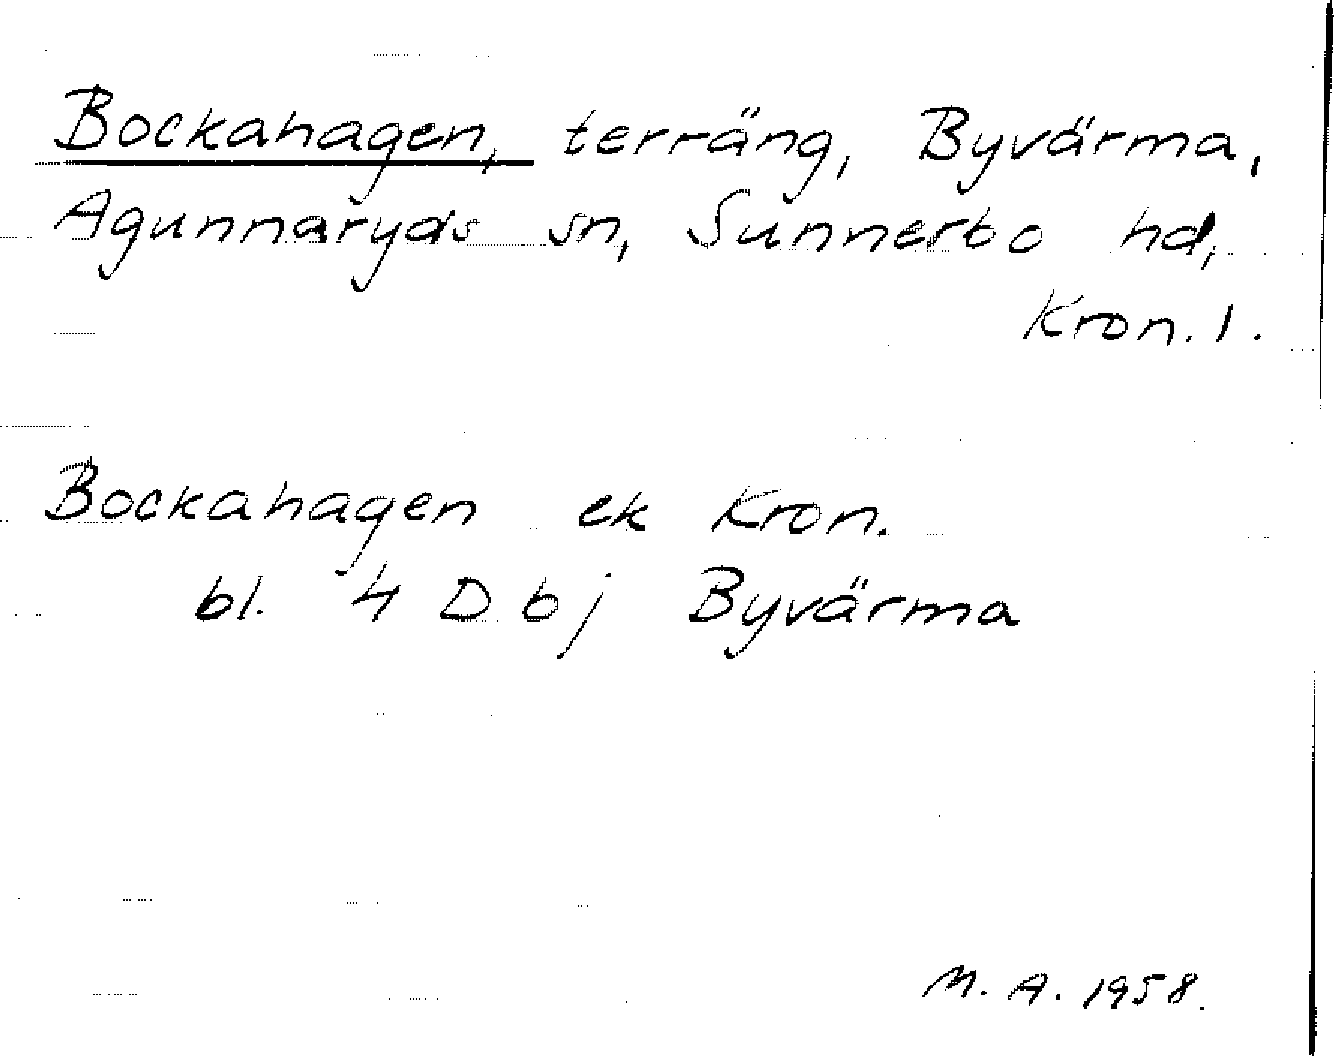 Bockahagen, terräng, Byvärma,
Agunnaryds sn, Sunnerbo hd,
Kron. l.
Bockahagen ek Kron.
bl. 4 D b j Byvärma
M. A. 1958.